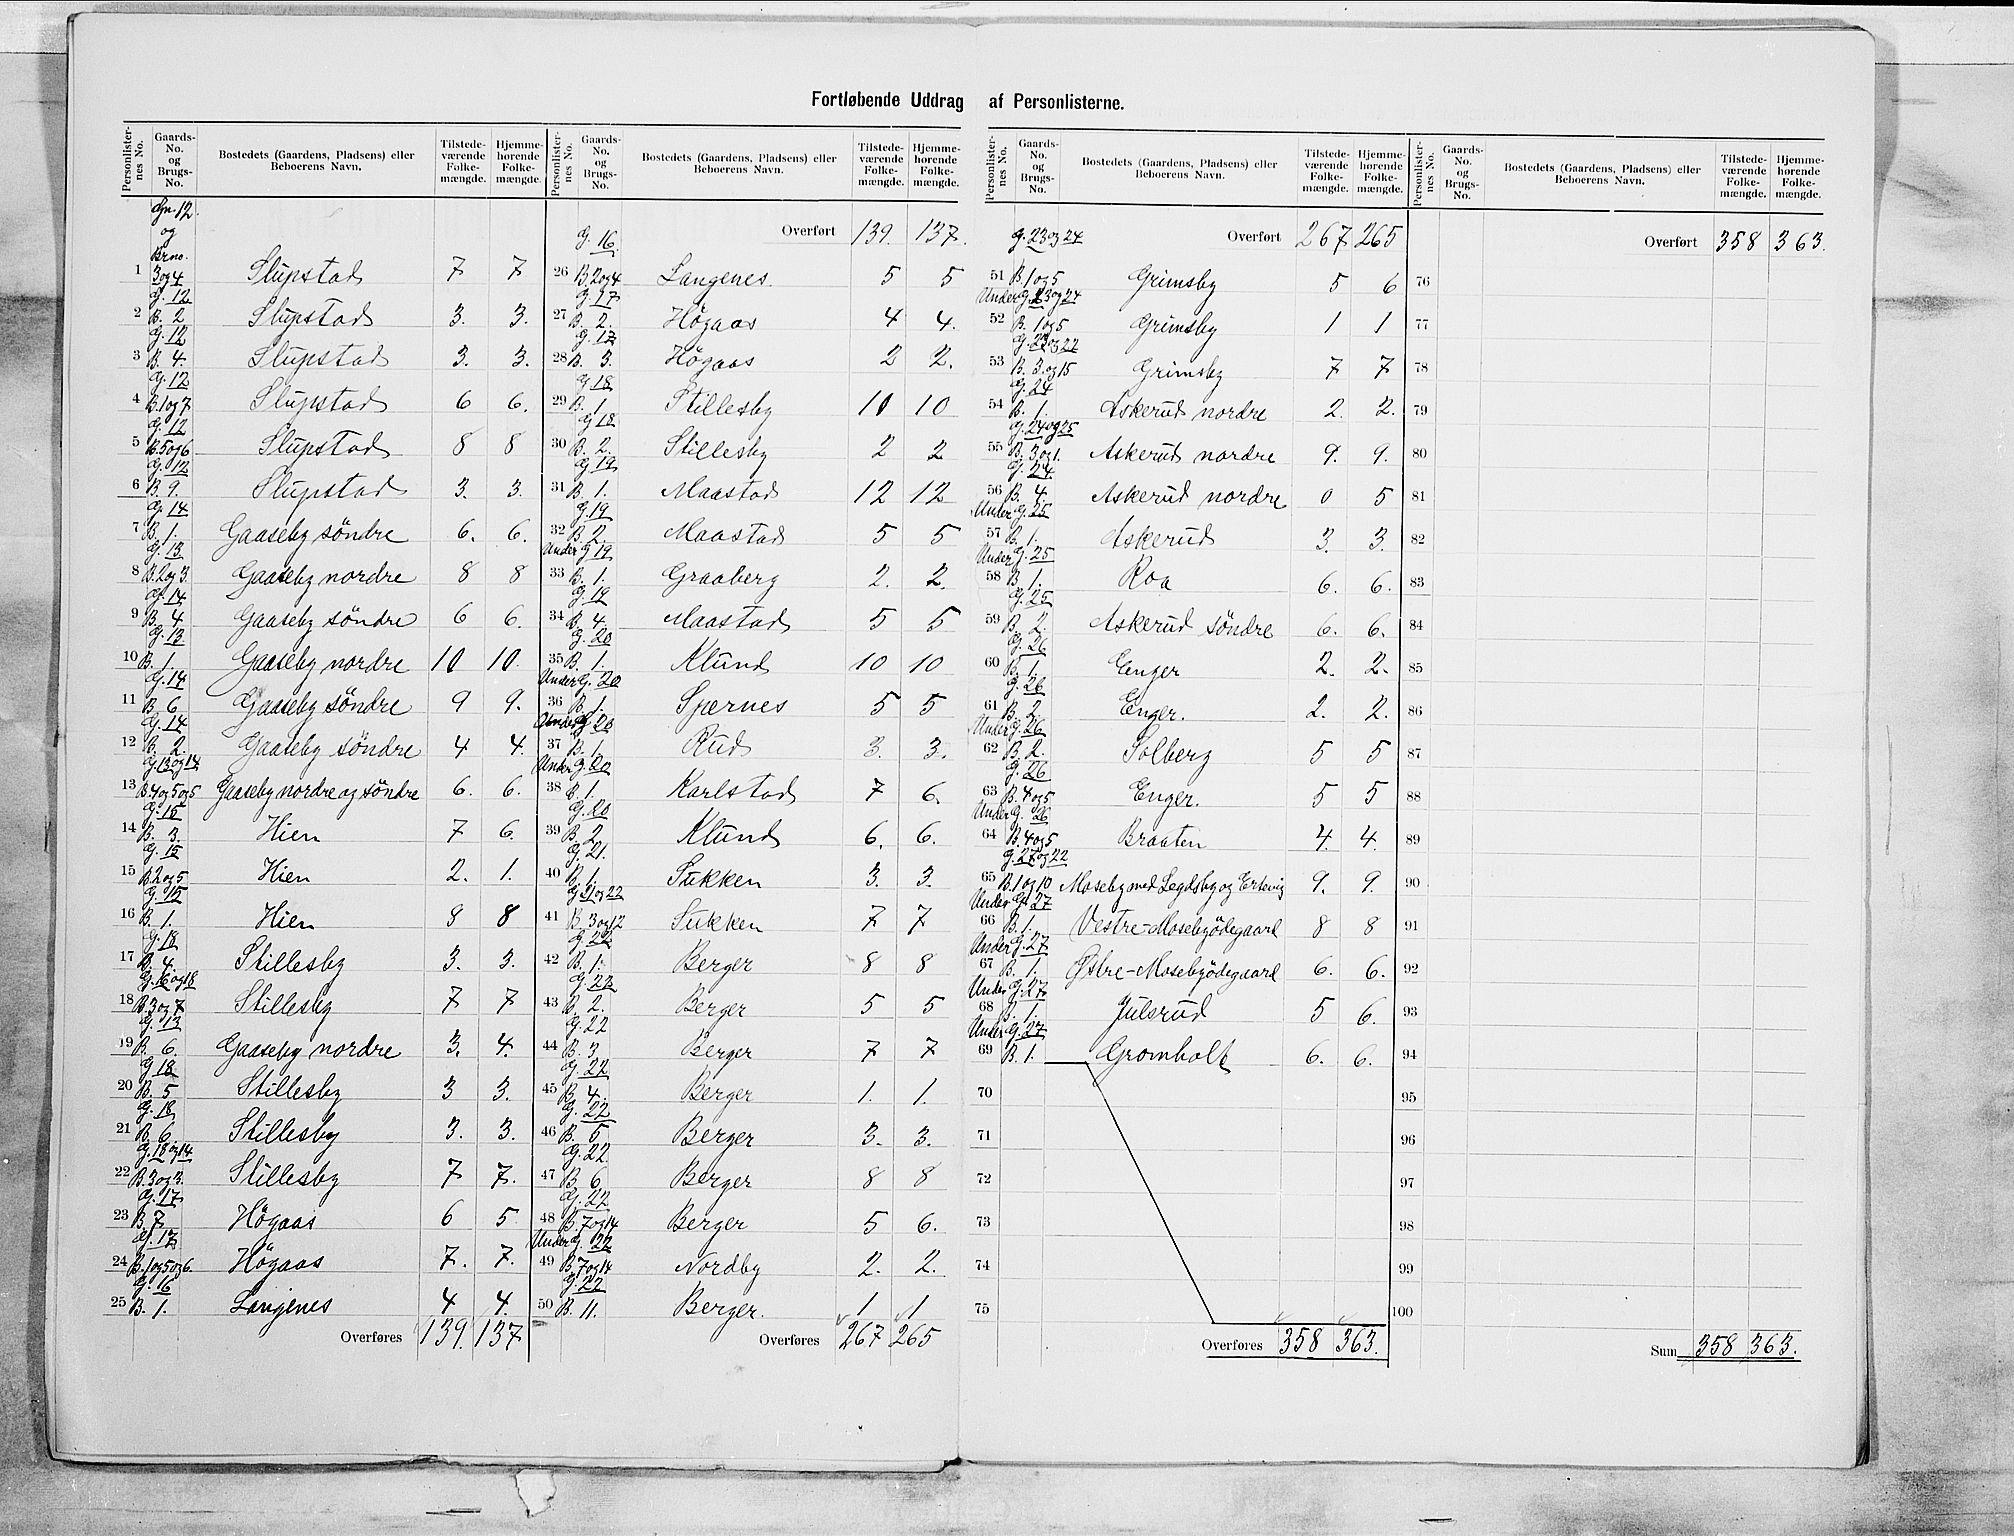 Fortløbende Uddrag af Personlisterne.
Personlisternes No. Gaards-No. og Brugs-No. Bostedets (Gaardens, Pladsens) eller Beboerens Navn. Tilstedeværende Folkemængde. Hjemmehørende Folkemængde.
Gn. 12 og Brno.
1 3og4 Slupstad 7 7
2 G. 12 B. 2 Slupstad 3. 3.
3 G. 12 B. 4. Slupstad 3. 3.
4 G. 12 B. 1og7 Slupstad 6 6.
5 G. 12 B. 5og6 Slupstad 8 8
6 G. 12 B. 9. Slupstad 3. 3.
7 G. 14 B. 1. Gaaseby söndre 6. 6.
8 G. 13 B. 2og3. Gaaseby nordre 8 8
9 G. 14 B. 4 Gaaseby söndre 6 6.
10 G. 13 B. 1. Gaaseby nordre 10 10.
11 G. 14 B. 6 Gaaseby söndre 9 9.
12 G. 14 B. 2. Gaaseby söndre 4 4.
13 G. 13og14 B. 4og5og5 Gaaseby nordre og söndre 6. 6.
14 G. 15 B. 3. Hien 7 6.
15 G. 15 B. 2og5 Hien 2. 1.
16 G. 15 B. 1. Hien 8 8
17 G. 18 B. 4. Stillesby 3. 3.
18 G. 16og18 B. 3og7 Stillesby 7 7
19 G. 13 B. 6. Gaaseby nordre 3. 4.
20 G 18 B. 5 Stillesby 3 3.
21 G. 18 B. 6. Stillesby 3. 3.
22 G. 18og14 B. 3og3. Stillesby 7 7.
23 G. 17 B. 7 Högaas 6 5
24 G. 17 B. 1og5og6. Högaas 7. 7.
25 G. 16 B. 1. Langenes 4 4.
Overføres 139. 137
Personlisternes No. Gaards-No. og Brugs-No. Bostedets (Gaardens, Pladsens) eller Beboerens Navn. Tilstedeværende Folkemængde. Hjemmehørende Folkemængde.
Overført 139. 137.
26 G. 16. B. 2og4 Langenes. 5 5
27 G. 17 B. 2. Högaas 4 4.
28 G. 17 B. 3. Högaas 2 2.
29 G 18 B. 1. Stillesby 10 10
30 G 18 B. 2. Stillesby 2 2
31 G. 19 B. 1. Maastad 12 12
32 G. 19 B. 2. Maastad 5 5
33 Under G 19 B. 1. Graaberg 2. 2.
34 G. 19 B. 4. Maastad 5 5
35 G. 20 B. 1. Klund 10 10
36 Under G. 20 B. 1. Spernes 5 5
37 Under G 20 B. 1. Rud 3. 3.
38 Under G. 20 B. 1. Karlstad 7 6.
39 G. 20 B. 2. Klund 6. 6.
40 G. 21. B. 1. Sukken 3. 3.
41 G. 21og22 B. 3og12 Sukken 7 7
42 G. 22 B. 1. Berger 8 8
43 G. 22 B. 2. Berger 5 5
44 G. 22 B. 3 Berger 7 7
45 G. 22 B. 4. Berger 1. 1.
46 G. 22 B. 5 Berger 3. 3.
47 G. 22. B 6 Berger 8 8
48 G. 22 B. 7og14 Berger 5 6.
49 Under G. 22 B. 7og14 Nordby 2. 2.
50 G. 22 B. 11. Berger. 1 1
Overføres 267 265
Personlisternes No. Gaards-No. og Brugs-No. Bostedets (Gaardens, Pladsens) eller Beboerens Navn. Tilstedeværende Folkemængde. Hjemmehørende Folkemængde.
Overført 267 265
51 G. 23og24 B. 1og5 Grimsby 5 6
52 Under G. 23og24 B. 1og5 Grimsby 1 1
53 G. 23og22 B. 3.og15 Grimsby 7 7
54 G. 24 B. 1. Askerud nordre 2. 2.
55 G. 24og25 B. 3og1. Askerud nordre 9. 9.
56 G. 24 B. 4. Askerud nordre 0 5
57 Under G. 25 B. 1. Askerud 3. 3.
58 Under G. 25 B. 1. Roa 6. 6.
59 G. 25 B. 2. Askerud söndre 6. 6.
60 G. 26 B. 1. Enger 2. 2.
61 G. 26 B. 2. Enger. 2. 2.
62 Under G. 26 B. 2. Solberg 5 5
63 G. 26 B. 4og5 Enger. 5 5
64 Under G. 26 B. 4og5 Braaten 4. 4.
65 G. 27og22 B. 1og10 Moseby med Legdsby og Ertevig 9. 9.
66 Under G. 27 B. 1. Vestre-Mosebyödegaard 8 8
67 Under G. 27 B. 1. Østre-Mosebyödegaard 6. 6.
68 Under G. 27 B. 1. Julsrud 5 6.
69 Under G. 27 B. 1. Gromholt 6. 6.
70
71
72
73
74
75
Overføres 358 363.
Personlisternes No. Gaards-No. og Brugs-No. Bostedets (Gaardens, Pladsens) eller Beboerens Navn. Tilstedeværende Folkemængde. Hjemmehørende Folkemængde.
Overført 358 363.
76
77
78
79
80
81
82
83
84
85
86
87
88
89
90
91
92
93
94
95
96
97
98
99
100
Sum 358 363.